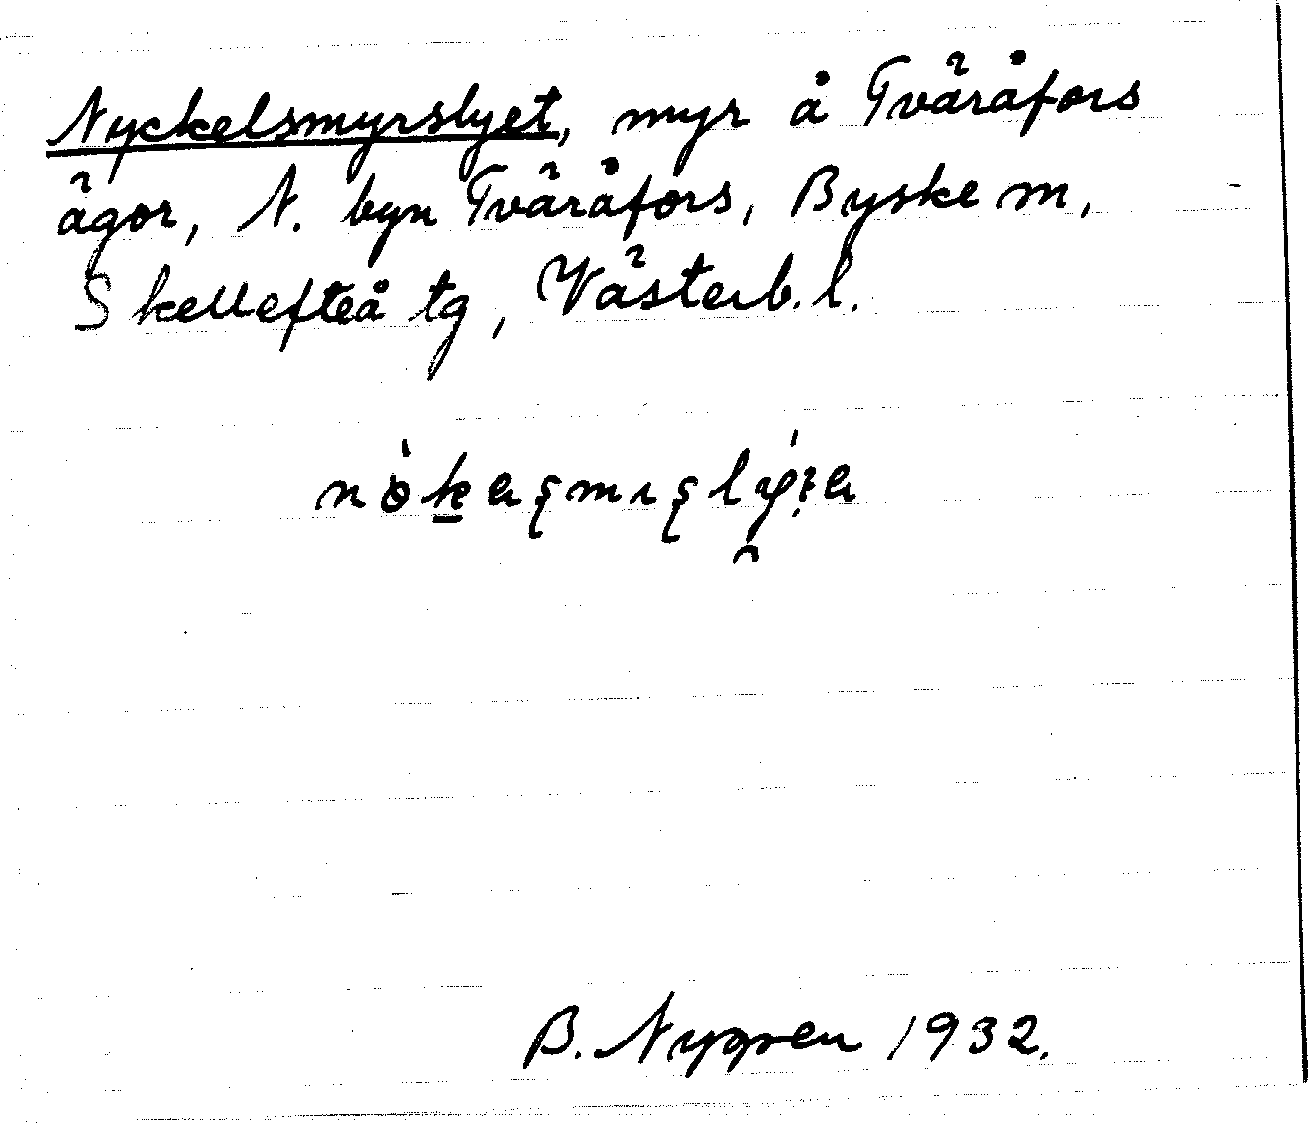 Nyckelsmyrslyet, myr å Tväråfors
ägor, N. byn Tväråfors, Byske sn,
Skellefteå tg, Västerb. l.
B. Nygren 1932.